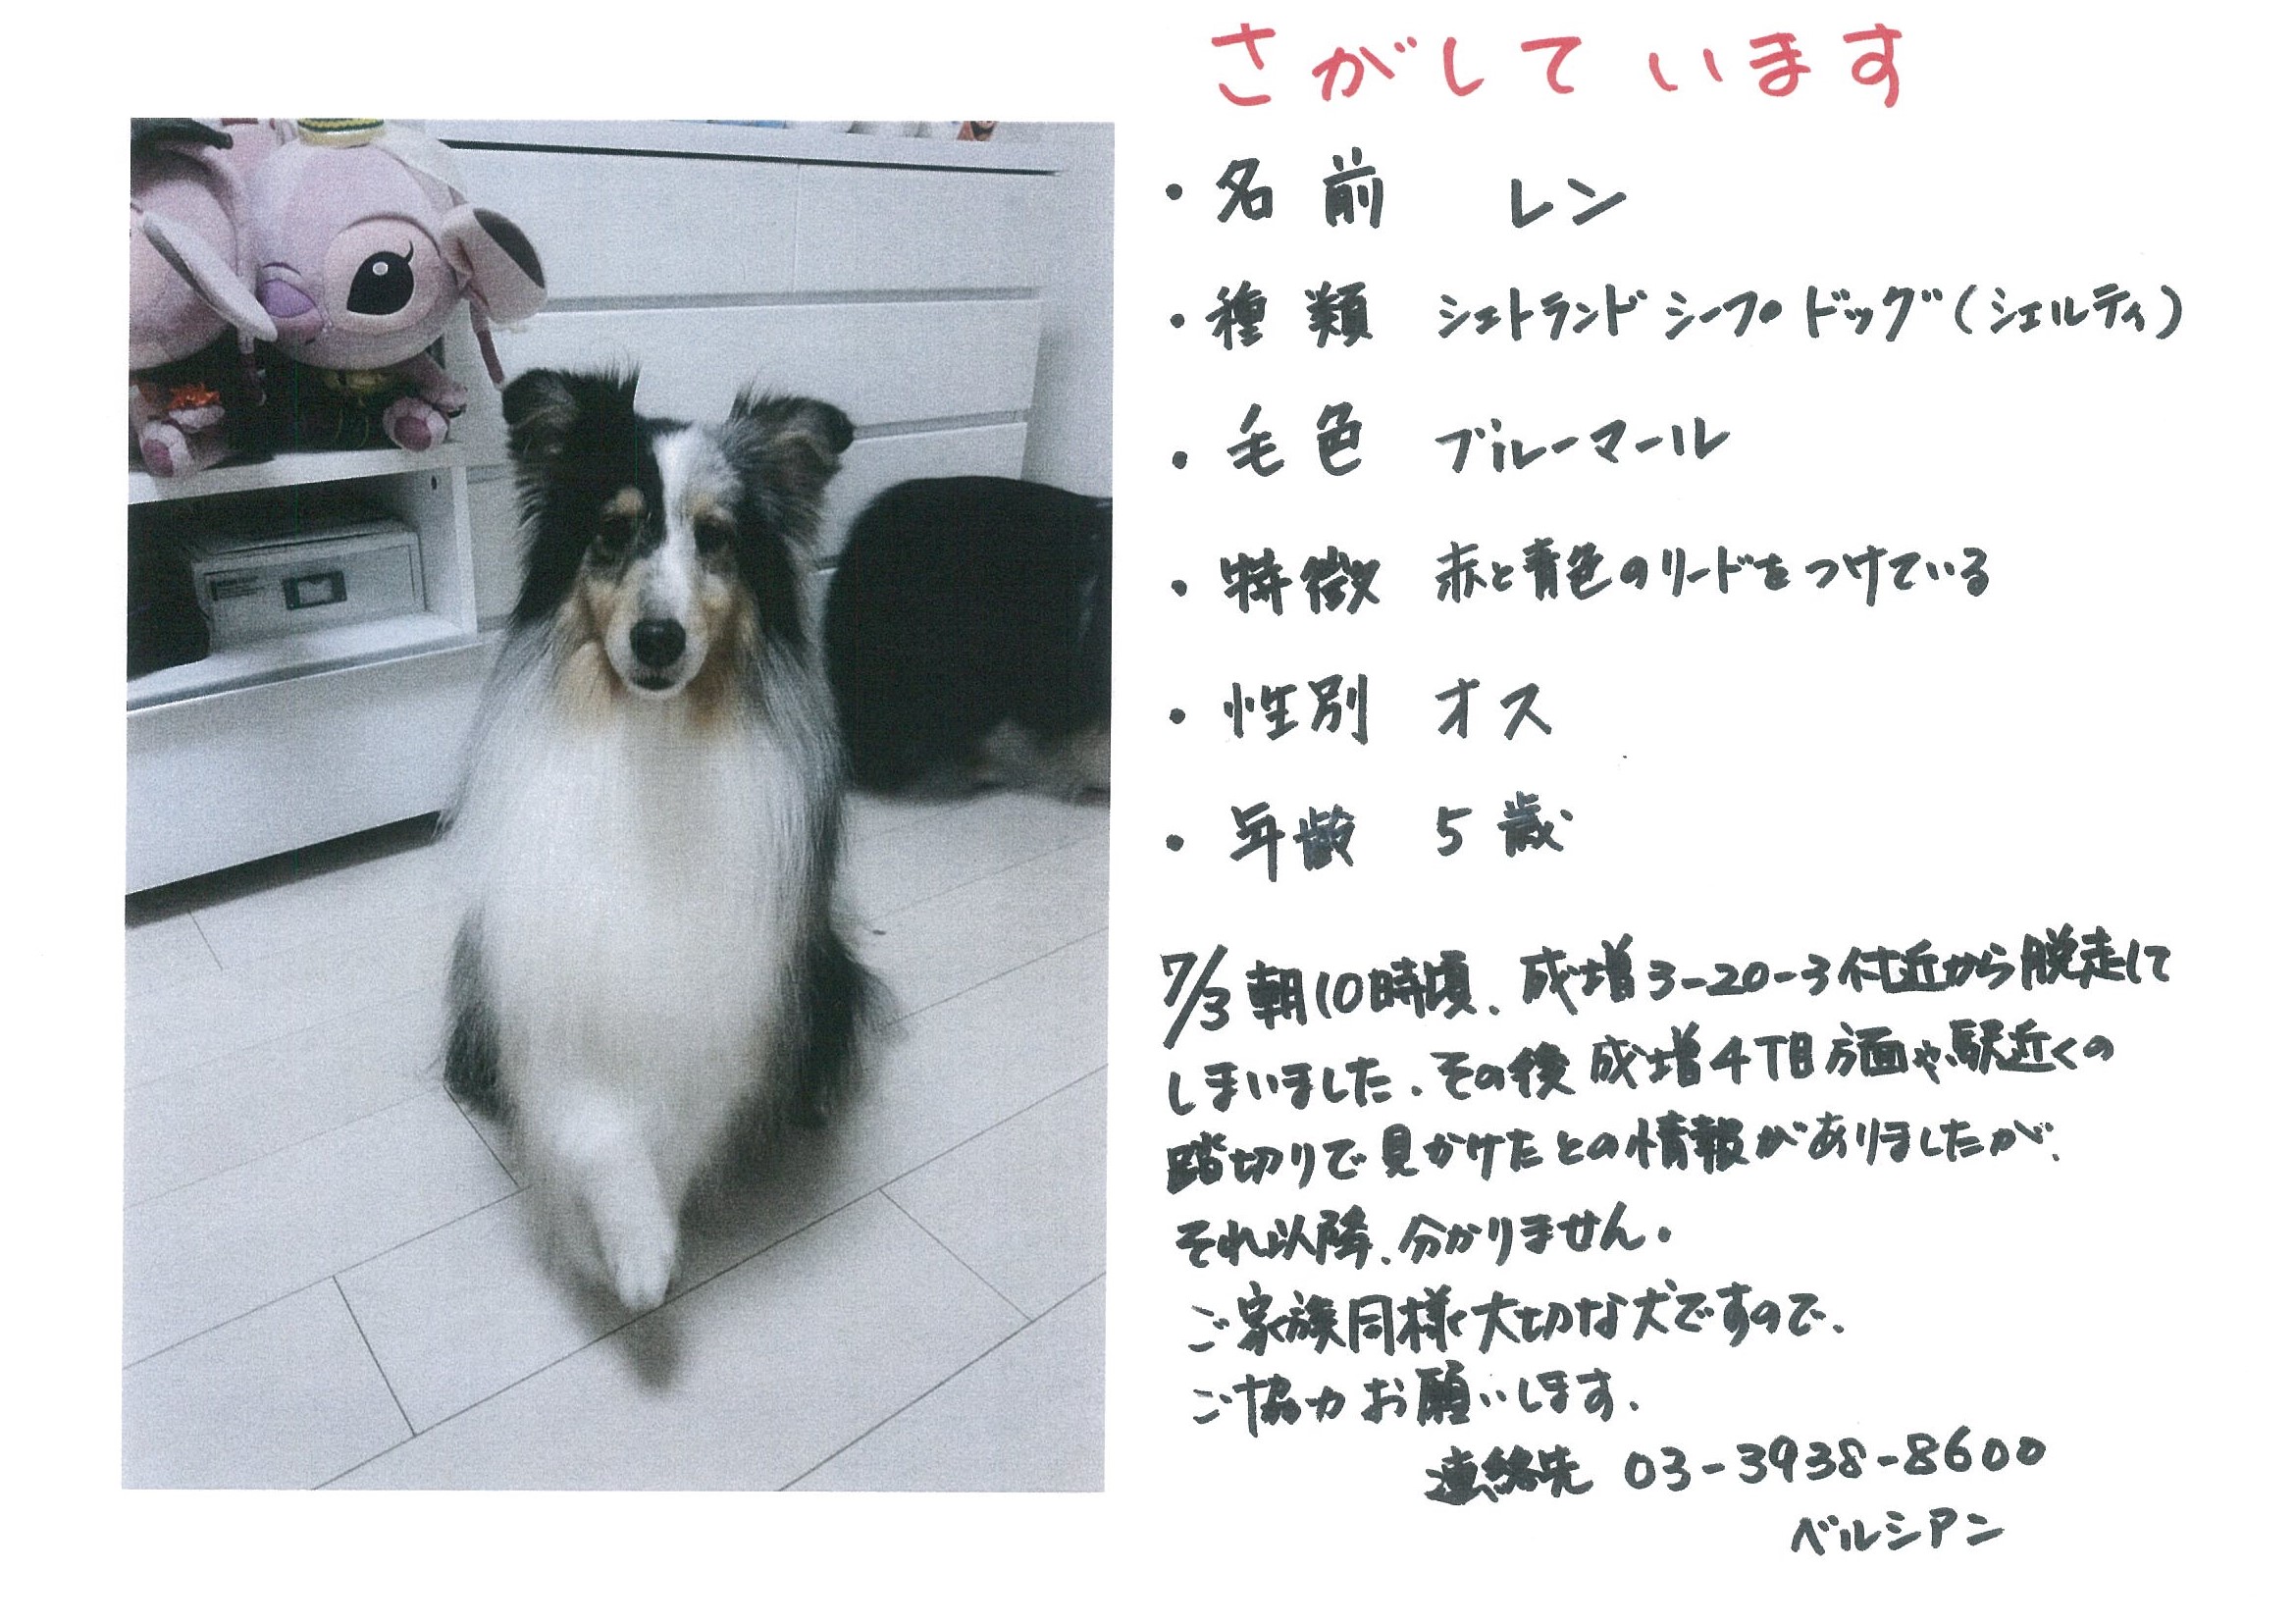 さがしています
・名前 レン
・種類 シェトランドシープドッグ(シェルティ)
・毛色 ブルーマール
・特徴 赤と青色のリードをつけている
・性別 オス
・年齢 5歳
7/3 朝10時頃、成増3-20-3付近から脱走して
しまいました。その後 成増4丁目方面や駅近くの
踏切りで見かけたとの情報がありましたが、
それ以降、分かりません。
ご家族同様大切な犬ですので、
ご協力お願いします。
連絡先 03-3938-8600
ベルシアン